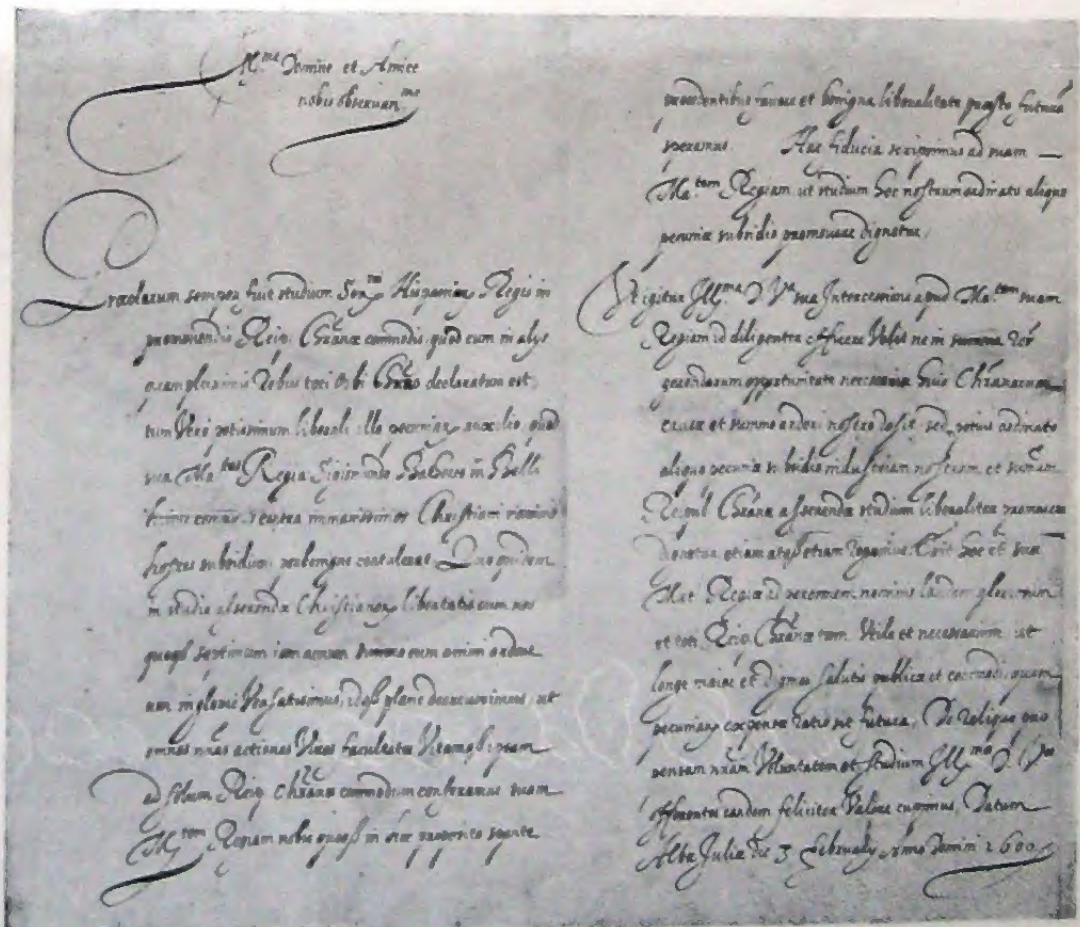 Ill.me Domine et Amice
nobis obseruan.me
Praeclarum semper fuit studium Ser.mi Hispaniar. Regis in
promouendis Reip. Chr̃anae commodis, quod cum in alijs
quamplurimis Rebus toti Orbi Chr̃ano declaratum est,
tum Vero potissimum liberali illo pecuniar. auxilio, quod
sua Ma.tas Regia Sigismundo Bathoreo in Belli
contra immanissimos Christiani nominis
hostes subsidium contulerat. Quo quidem
in studio asserendae Christianor. libertatis cum nos
quoq septimum iam annum summo cum animi ardore
Versatusimus, idq plane decreuerimus, ut
omnes nr̃as actiones Vires facultates Vitamq ipsam
ad solum Reip. Chr̃anae commodum conferamus suam
Ma.tem Regiam nobis quoq in hoc
fauore et benigna liberalitate praesto futuram
speramus. Hac fiducia scripsimus ad suam
Ma.tem Regiam ut studium hoc nostrum ordinato aliquo
pecuniae subsidio promouere dignetur.
Vt igitur Ill.ma D. V.ra sua Intercessione apud Ma.tem suam
Regiam id diligenter efficere Velit ne in summa Rer.
gerendarum opportunitate necessaria huic Chr̃anorum
causae et summo ardori nostro desit, sed potius ordinato
aliquo pecuniae subsidio industriam nostram et summum
Reipub. Chr̃anae asserendae studium liberaliter promouere
dignetur, etiam atq etiam Rogamus. Erit hoc et suae
Mat. Regiae ad perennem nominis laudem gloriosum
et toti Reip. Chr̃anae tam Vtile et necessarium ut
longe maior et dignior salutis publicae et commodi, quam
pecuniar. expensae Ratio sit futura. De Reliquo
pensam nr̃am Voluntatem et studium Ill.ma D. V.rae
offerentes eandem feliciter Valere cupimus. Datum
Albae Juliae die 3 February Anno Domini 1600